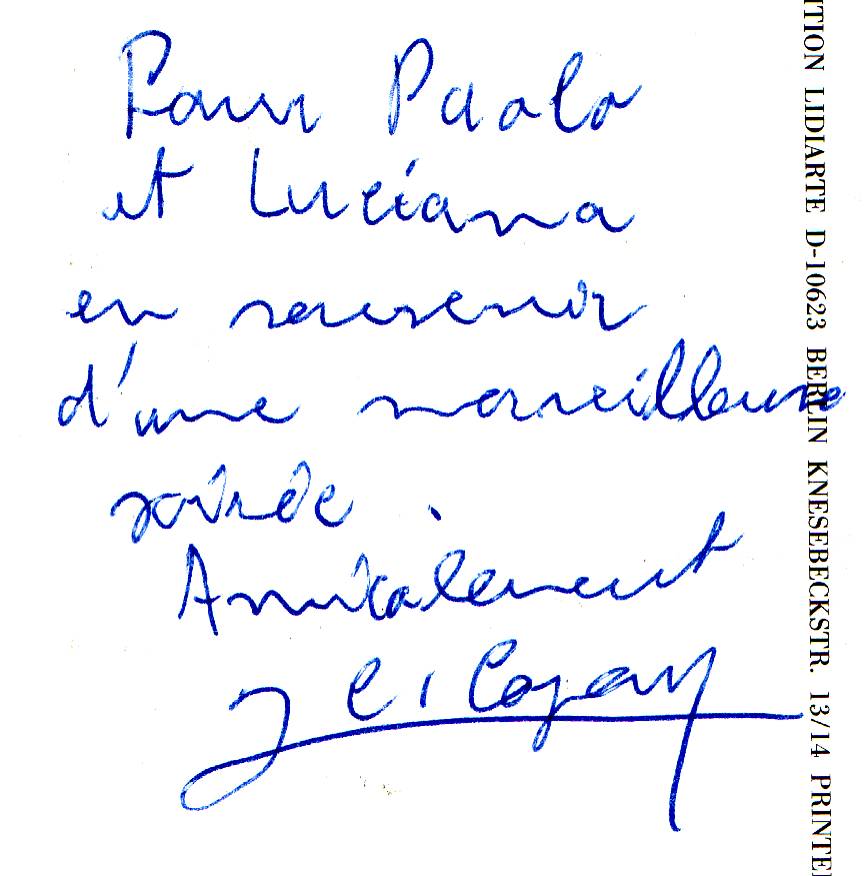 Pour Paolo
et Luciana
en souvenir
d'une merveilleuse
soirée.
Amicalement
ITION LIDIARTE D-10623 BERLIN KNESEBECKSTR. 13/14 PRINTE